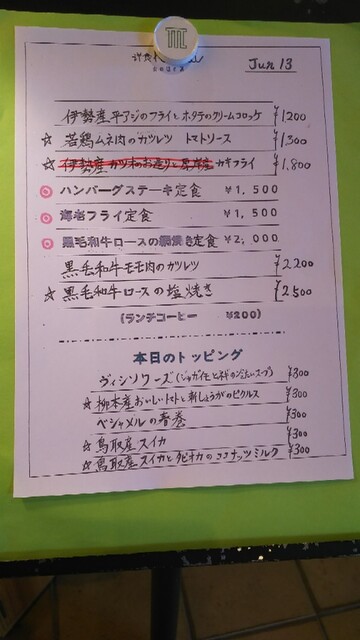 Jun 13
伊勢産平アジのフライとホタテのクリームコロッケ ¥1200
☆ 若鶏ムネ肉のカツレツ トマトソース ¥1,300
☆ 伊勢産カツオのお造りと カキフライ ¥1,800
◎ ハンバーグステーキ定食 ¥1,500
◎ 海老フライ定食 ¥1,500
◎ 黒毛和牛ロースの網焼き定食 ¥2,000
黒毛和牛モモ肉のカツレツ ¥2200
☆ 黒毛和牛ロースの塩焼き ¥2500
(ランチコーヒー ¥200)
本日のトッピング
ヴィシソワーズ(ジャガイモとネギの冷たいスープ) ¥300
☆ 栃木産おいしいトマトと新しょうがのピクルス ¥300
ベシャメルの春巻 ¥300
☆ 鳥取産スイカ ¥300
☆ 鳥取産スイカとタピオカのココナッツミルク ¥300